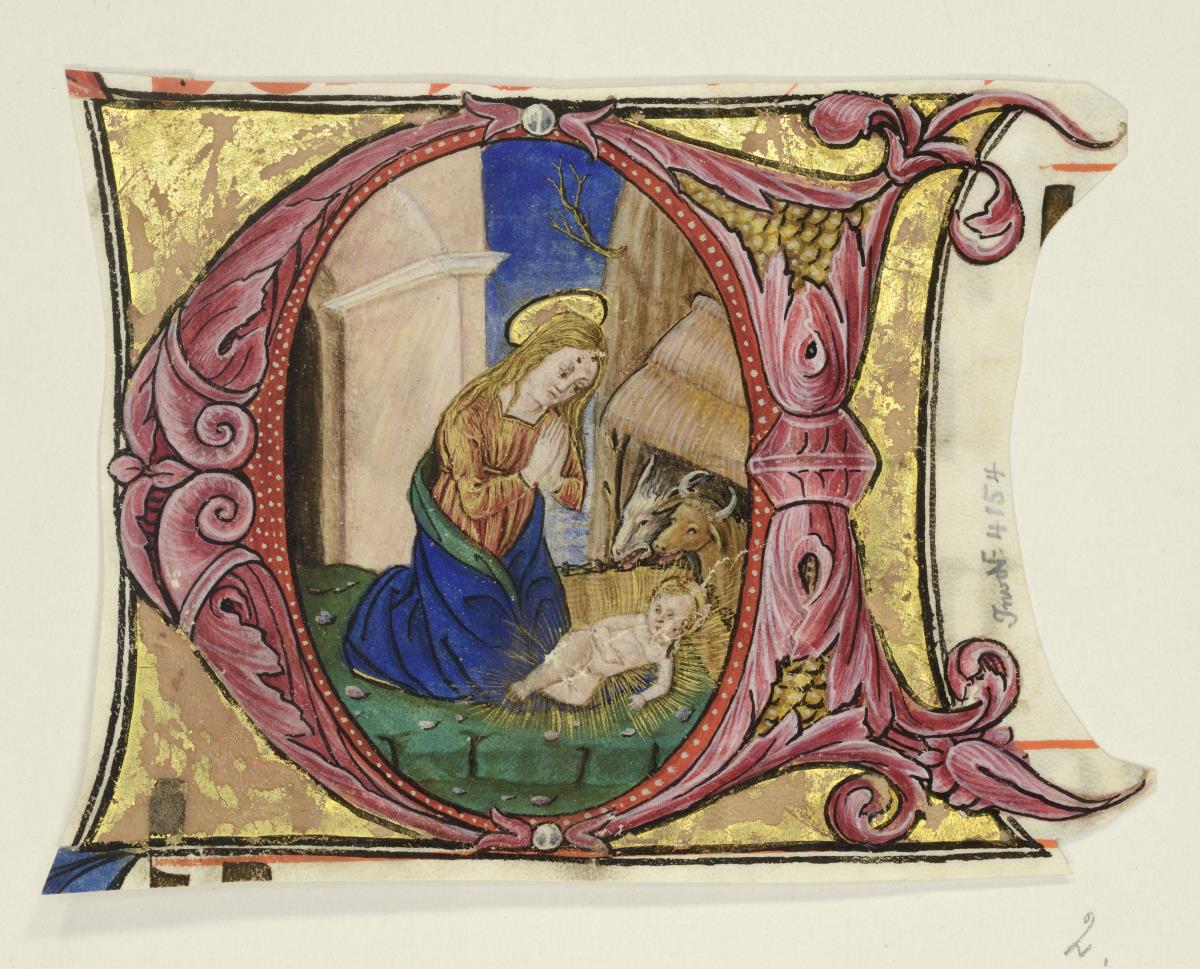 InvN: 4154
2.